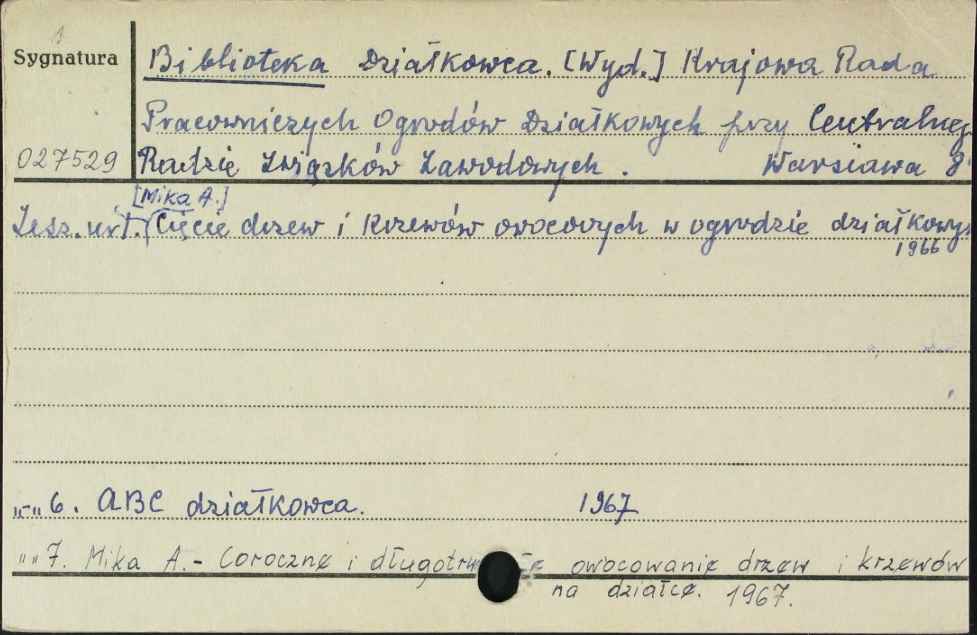 Sygnatura
Biblioteka Działkowca. [Wyd.] Krajowa Rada
Pracowniczych Ogrodów Działkowych przy Centralnej
027529 Radzie Związków Zawodowych. Warszawa 8
[Mika A.]
Zesz. nr 1. Cięcie drzew i krzewów owocowych w ogrodzie działkowym
1966
„-„ 6. ABC działkowca. 1967
„„ 7. Mika A. - Coroczne i owocowanie drzew i krzewów
na działce. 1967.